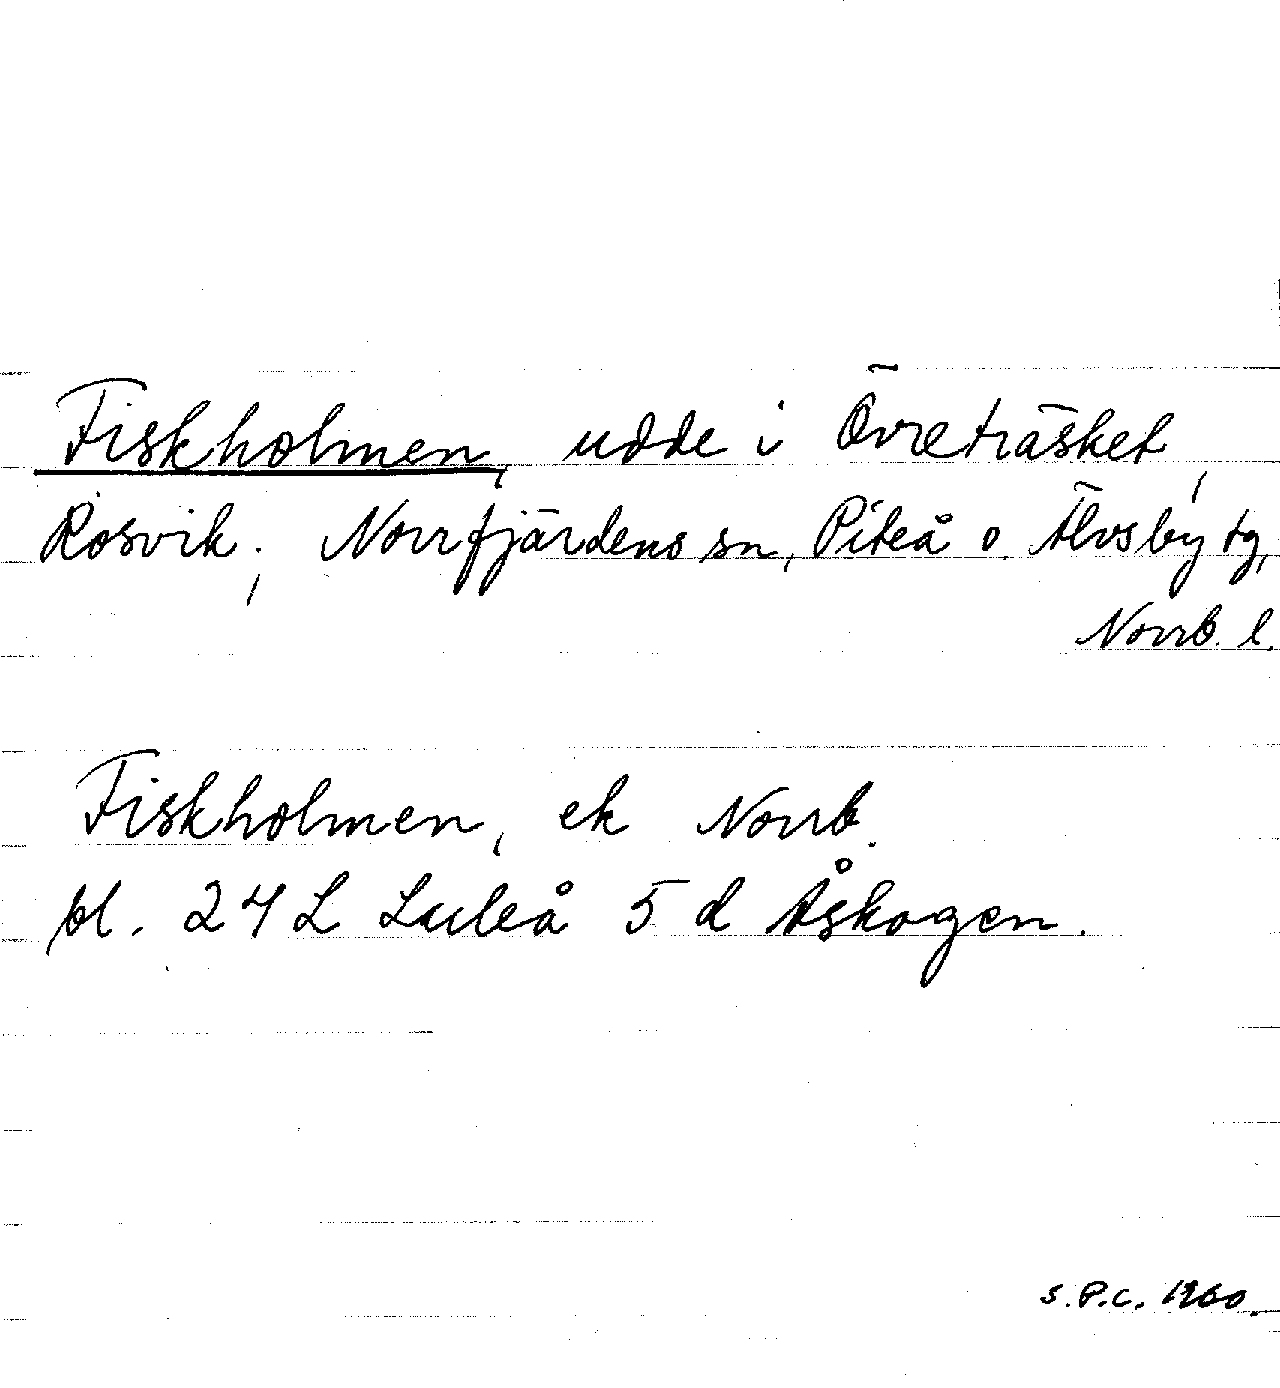 Fiskholmen, udde i Övreträsket,
Rosvik; Norrfjärdens sn, Piteå o. Älvsby tg,
Norrb. l.
Fiskholmen, ek Norrb.
bl. 24 L Luleå 5 d Åskogen.
S.P.C. 1960.